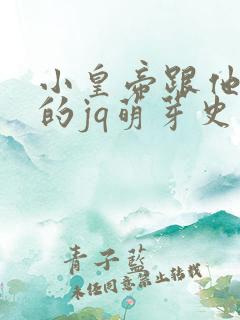 小皇帝跟他
的jq萌芽史
青子蓝
未经同意禁止转载